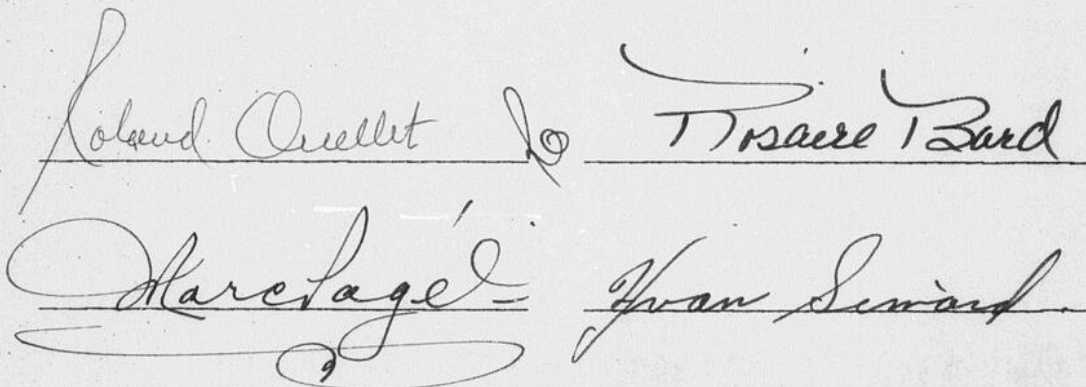 Roland Ouellet Rosaire Bard
Marc Pagé Yvan Simard